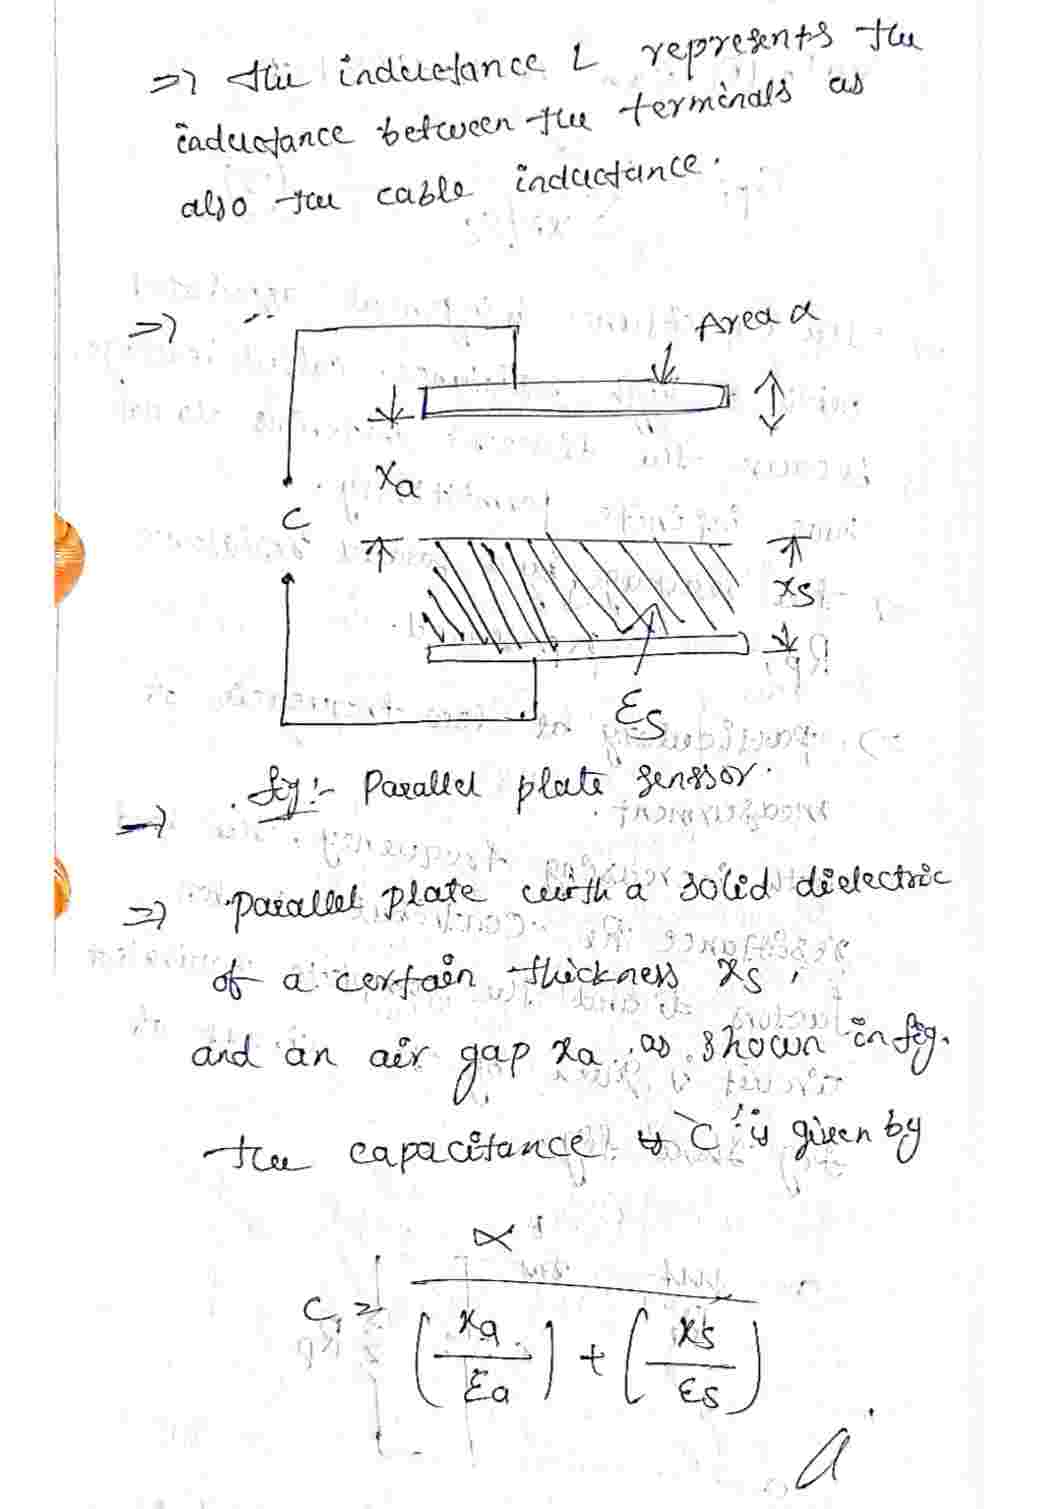 => the inductance L represents the
inductance between the terminals as
also the cable inductance.
=>
Area α
xa
C
xs
εs
fig:- Parallel plate sensor.
=> parallel plate with a solid dielectric
of a certain thickness xs,
and an air gap xa as shown in fig.
the capacitance 'C' is given by
C = α / ((xa/εa) + (xs/εs))